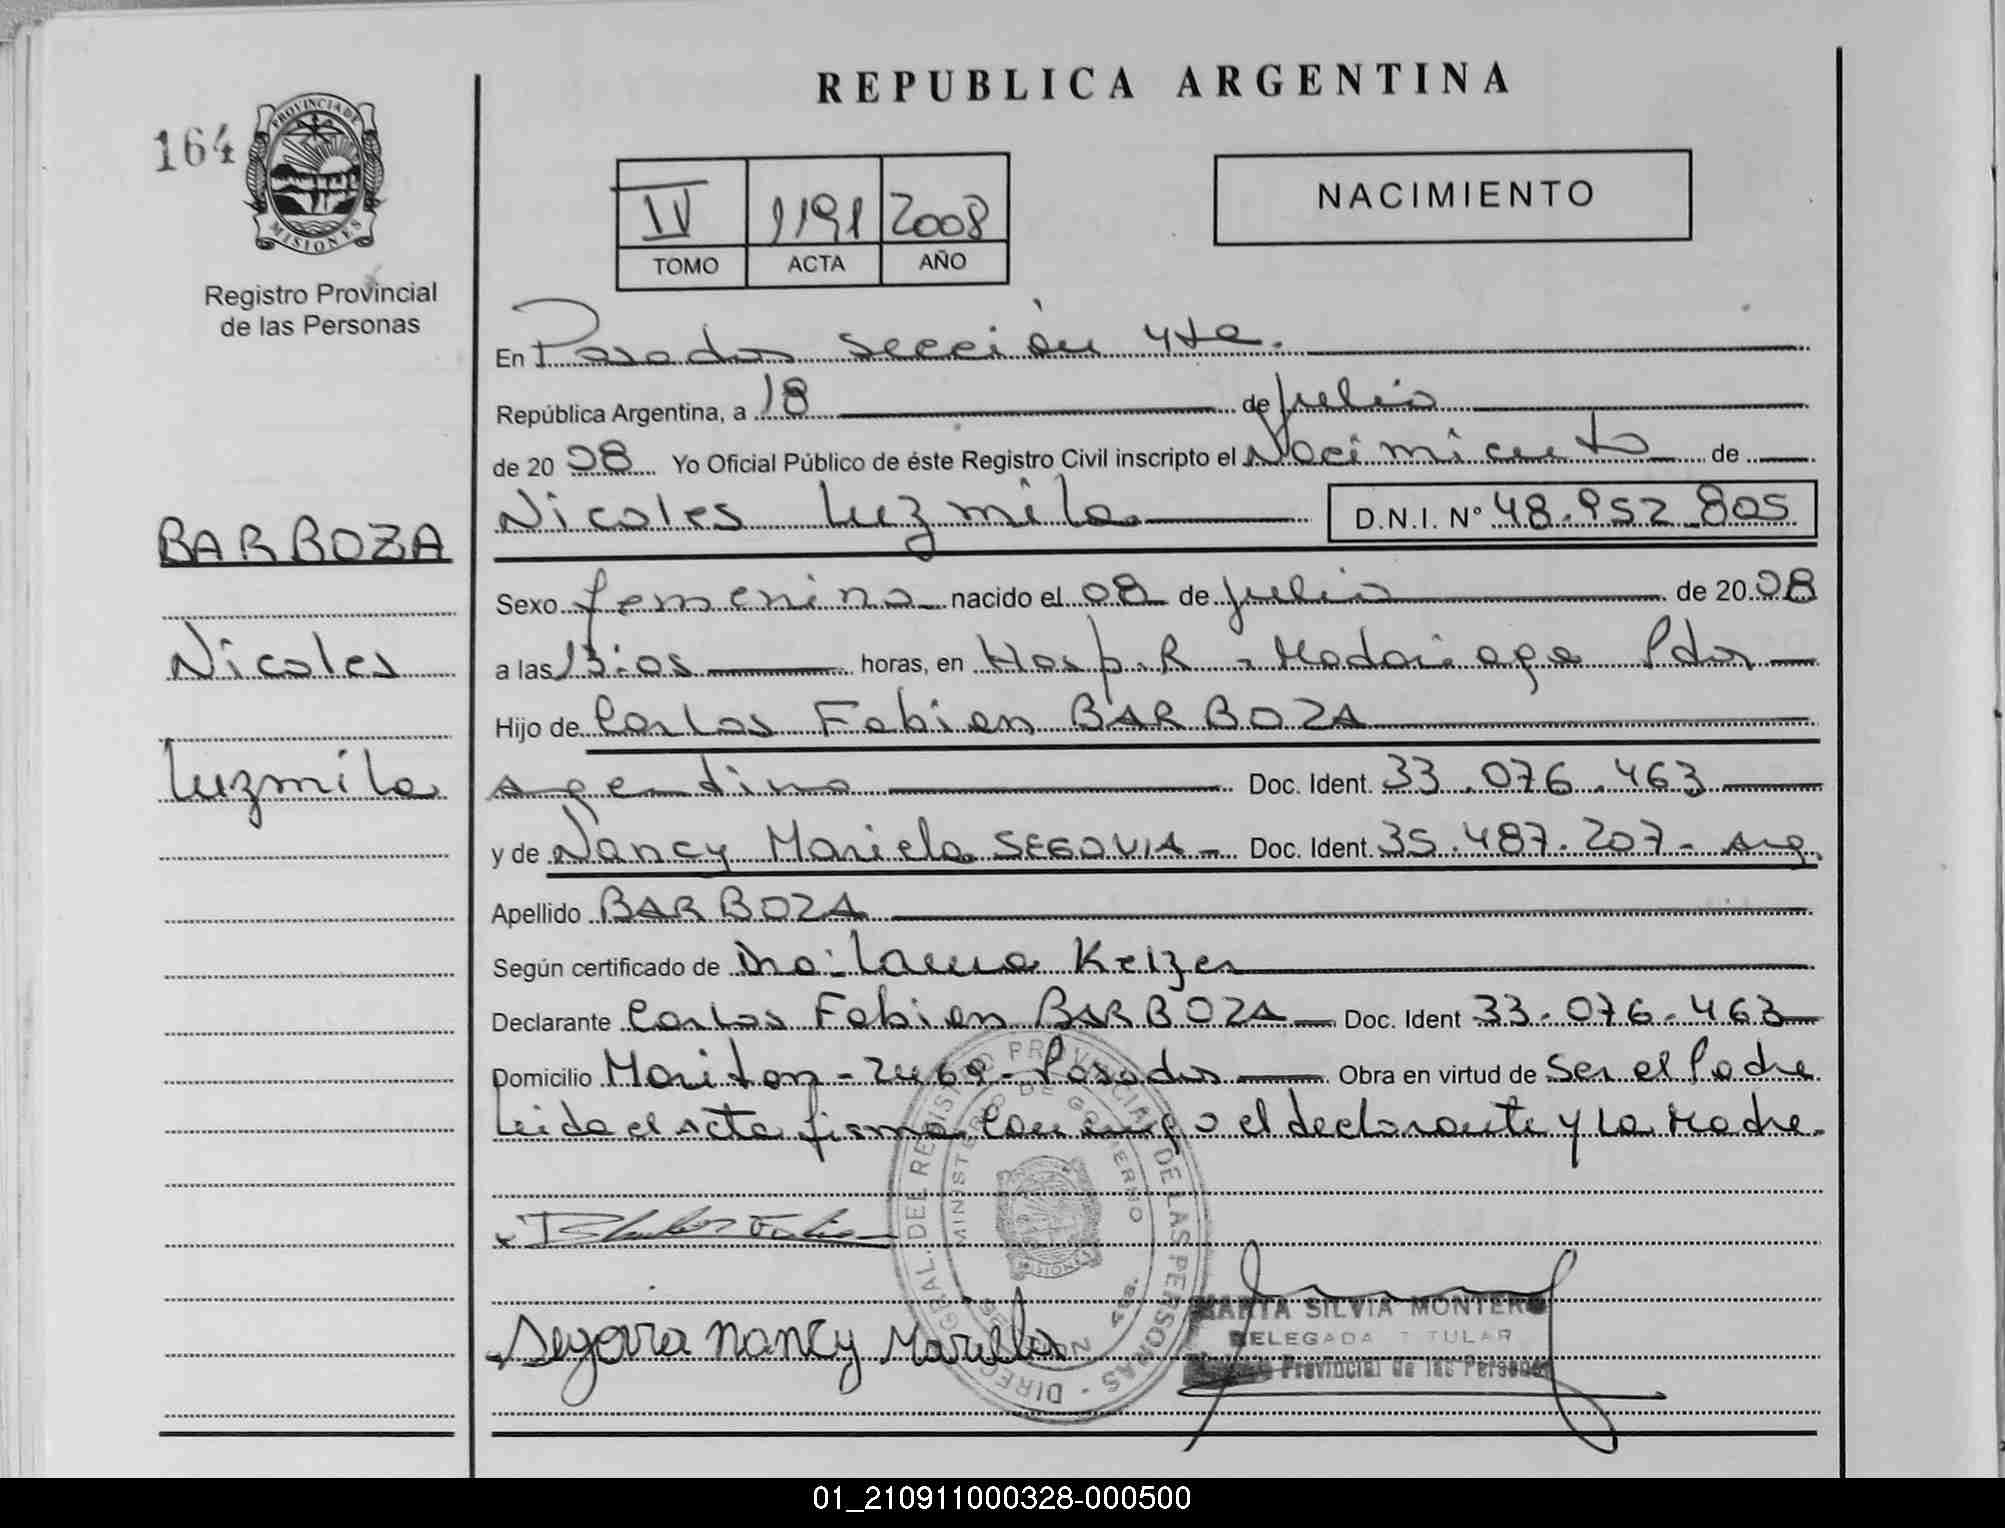 REPUBLICA ARGENTINA
164
PROVINCIA DE
MISIONES
Registro Provincial
de las Personas
IV 1191 2008
TOMO ACTA AÑO
NACIMIENTO
En Posadas sección 4ta.
República Argentina, a 18 de julio
de 20 08 Yo Oficial Público de éste Registro Civil inscripto el Nacimiento de
Nicoles Luzmila D.N.I. N° 48.952.805
BARBOZA
Nicoles
Luzmila
Sexo femenino nacido el 08 de julio de 20 08
a las 13:05 horas, en Hosp. R. Madariaga Pdas
Hijo de Carlos Fabian BARBOZA
argentino Doc. Ident. 33.076.463
y de Nancy Mariela SEGOVIA - Doc. Ident. 35.487.207 - arg.
Apellido BARBOZA
Según certificado de Dra: Laura Keizer
Declarante Carlos Fabian BARBOZA Doc. Ident 33.076.463
Domicilio Mariton - 2469 - Posadas Obra en virtud de ser el Padre
Leida el acta firma conmigo el declarante y la Madre.
DIREC GRAL. DEL REGISTRO PROVINCIAL DE LAS PERSONAS
MINISTERIO DE GOBIERNO
MISIONES
4ta.
Segovia Nancy Mariela
MARTA SILVIA MONTERO
DELEGADA TITULAR
Provincial de las Personas
01_210911000328-000500